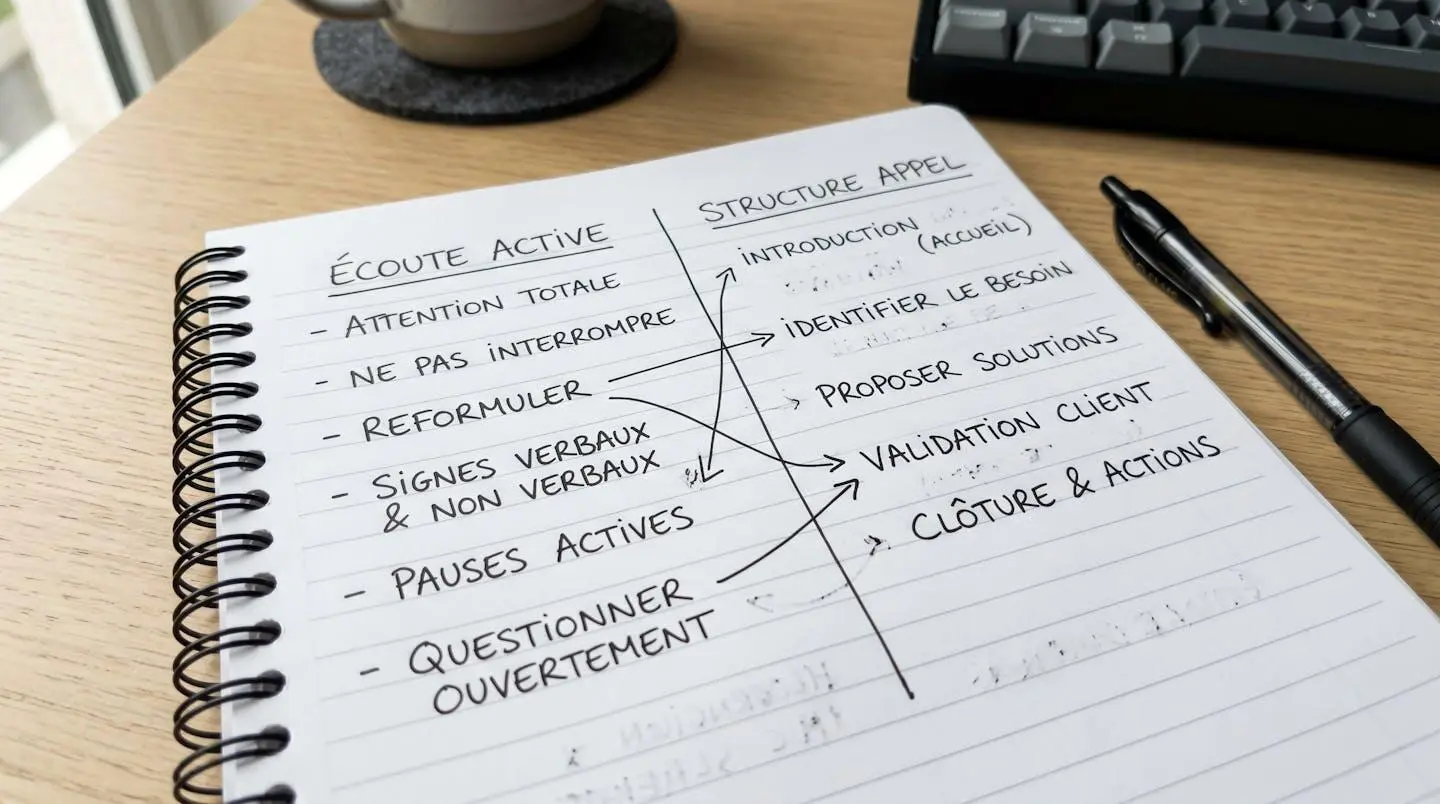 ÉCOUTE ACTIVE
- ATTENTION TOTALE
- NE PAS INTERROMPRE
- REFORMULER
- SIGNES VERBAUX
& NON VERBAUX
- PAUSES ACTIVES
- QUESTIONNER
OUVERTEMENT
STRUCTURE APPEL
INTRODUCTION
(ACCUEIL)
IDENTIFIER LE BESOIN
PROPOSER SOLUTIONS
VALIDATION CLIENT
CLÔTURE & ACTIONS